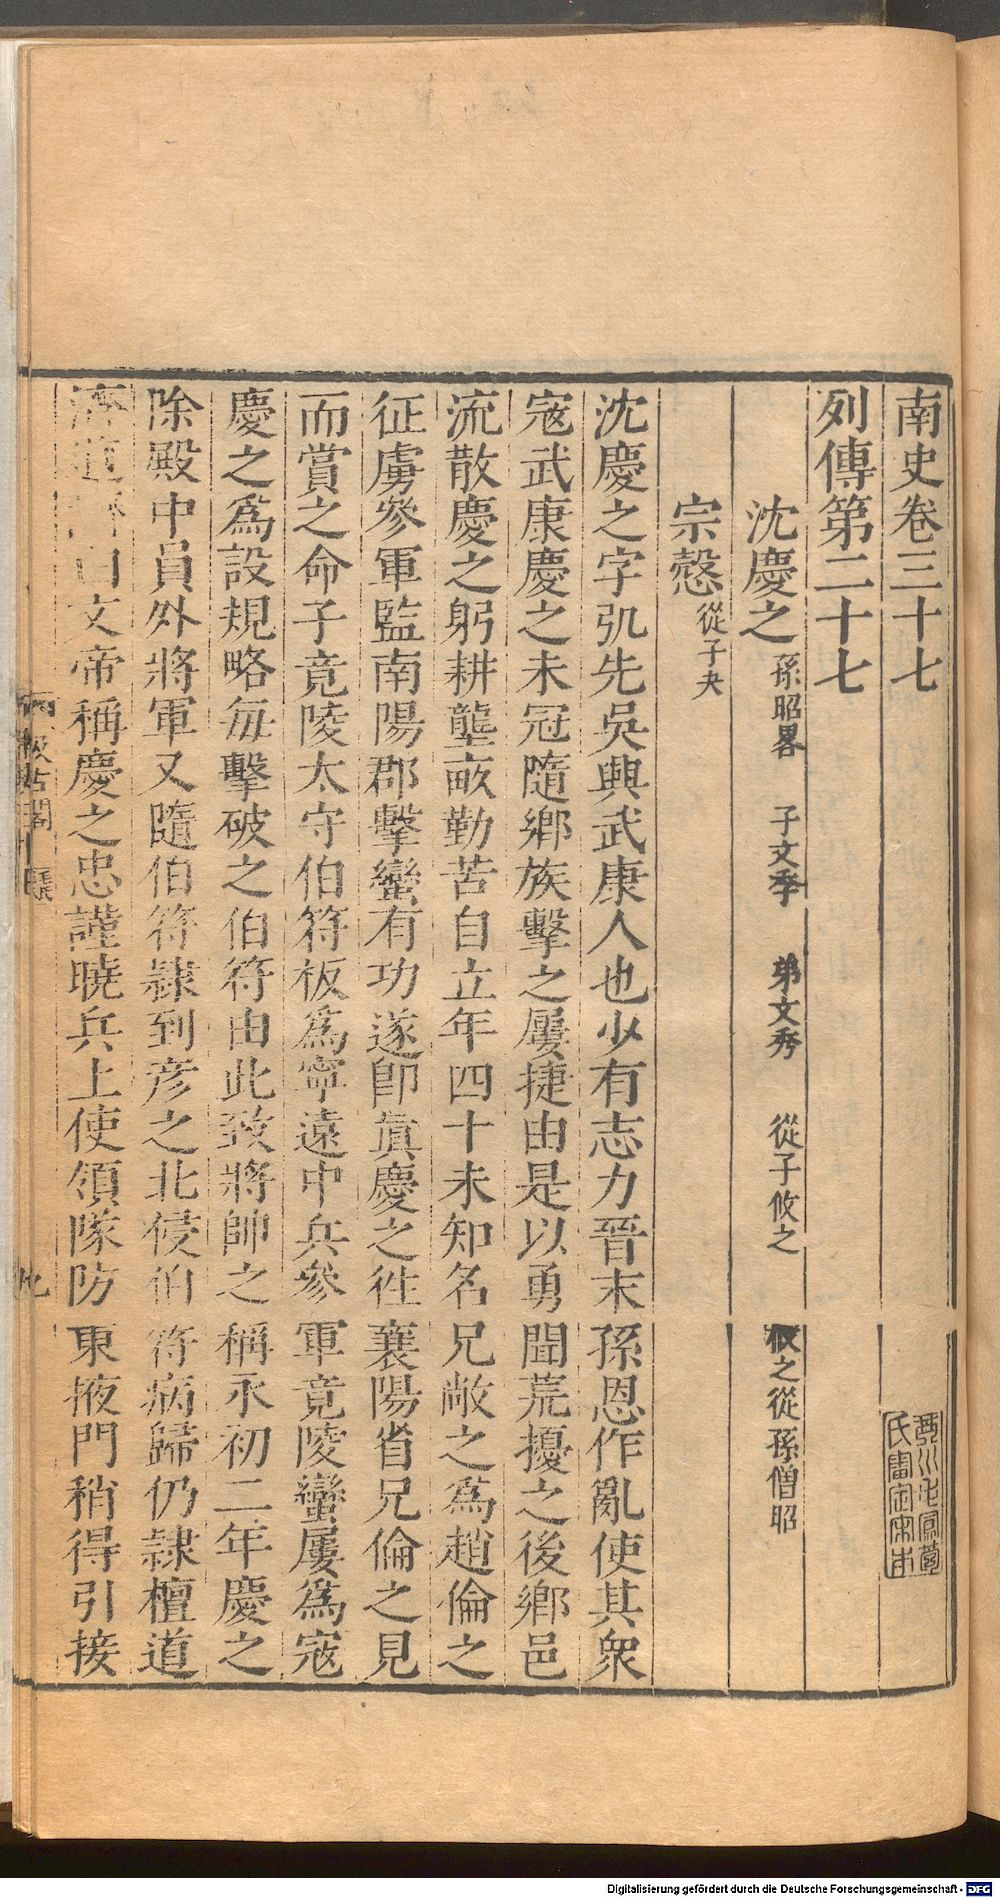 南史卷三十七
列傳第二十七
沈慶之 孫昭畧 子文季 弟文秀 從子攸之 攸之從孫僧昭
宗慤 從子夬
沈慶之字弘先吳興武康人也少有志力晉末孫恩作亂使其衆
宼武康慶之未冠隨鄉族擊之屢捷由是以勇聞荒擾之後鄉邑
流散慶之躬耕壟畝勤苦自立年四十未知名兄敞之爲趙倫之
征虜參軍監南陽郡擊蠻有功遂卽眞慶之往襄陽省兄倫之見
而賞之命子竟陵太守伯符板爲寧遠中兵參軍竟陵蠻屢爲宼
慶之爲設規略每擊破之伯符由此致將帥之稱永初二年慶之
除殿中員外將軍又隨伯符隷到彦之北侵伯符病歸仍隷檀道
濟道濟白文帝稱慶之忠謹曉兵上使領隊防東掖門稍得引接
汲古閣
Digitalisierung gefördert durch die Deutsche Forschungsgemeinschaft - DFG